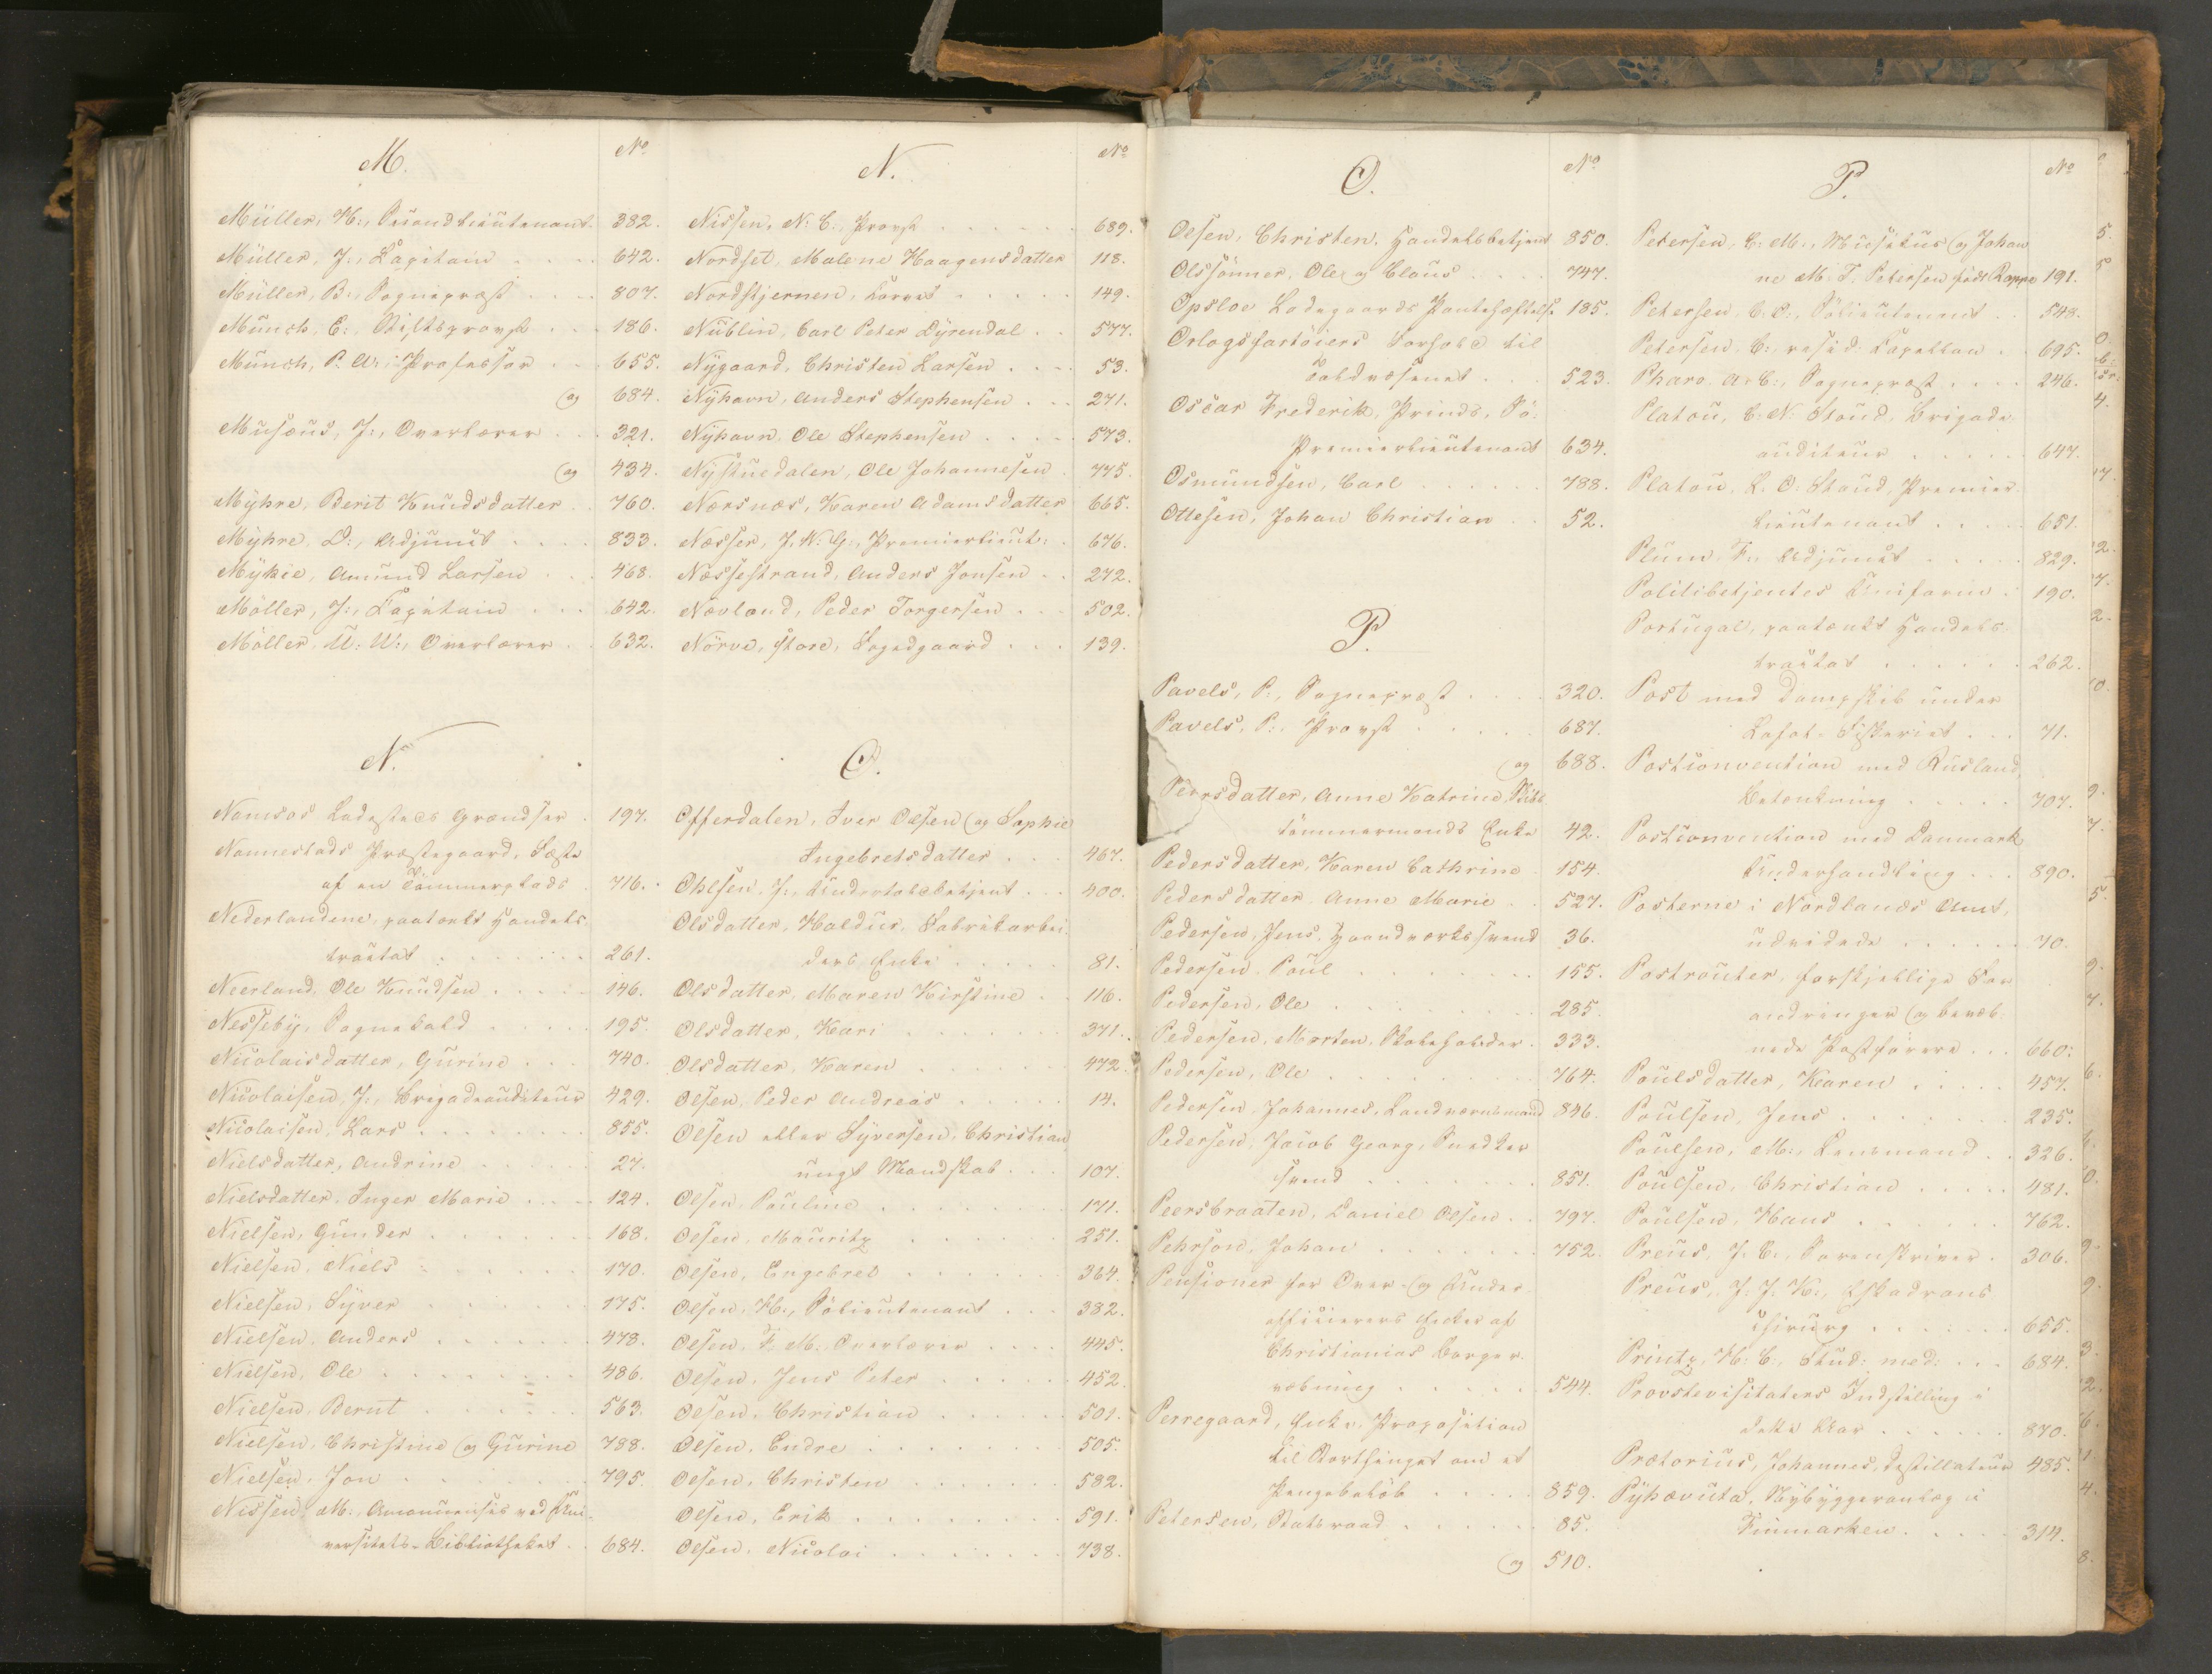 M.
No
Müller, H:, Secondlieutenant. 382.
Müller, J:, Capitain . . . . 642.
Müller, B:, Sognepræst . . . . 807.
Münch, E:, Stiftsprovst . . . 186.
Münch, P. A:, Professor . . . 655.
og 684.
Musæus, J:, Overlærer . . . 321.
og 434.
Myhre, Berit Knudsdatter . . 760.
Myhre, D:, Adjunct . . . . 833.
Mykie, Amund Larsen . . . 468.
Möller, J:, Capitain . . . 642.
Möller, U: W:, Overlærer . . 632.
N.
Namsos Ladesteds Grændser . 197.
Nannestads Præstegaard, Fæste
af en Tömmerplads . 716.
Nederlandene, paatænkt Handels
tractat . . . . . . . 261.
Neerland, Ole Knudsen . . . . 146.
Nesseby, Sognekald . . . . . 195.
Nicolaisdatter, Gurine . . . 740.
Nicolaisen, J:, Brigadeauditeur 429.
Nicolaisen, Lars . . . . . . . 855.
Nielsdatter, Andrine . . . . . 27.
Nielsdatter, Inger Marie . . . . 124.
Nielsen, Gunder . . . . . . . 168.
Nielsen, Niels . . . . . . . 170.
Nielsen, Syver . . . . . . . 175.
Nielsen, Anders . . . . . . . 478.
Nielsen, Ole . . . . . . . . 486.
Nielsen, Bernt . . . . . . . 563.
Nielsen, Christine og Gurine 788.
Nielsen, Jon . . . . . . . . 795.
Nissen, M:, Amanuensis ved Uni-
versitets-Bibliotheket . . 684.
N.
No
Nissen, N: C:, Provst . . . . . . 689.
Nordset, Malene Haagensdatter 118.
Nordstjernen, Corvet . . . . . 149.
Nüblin, Carl Peter Dyrendal . . 577.
Nygaard, Christen Larsen . . . . 53.
Nyhavn, Anders Stephensen . . . 271.
Nyhavn, Ole Stephensen . . . . . 573.
Nystuedalen, Ole Johannesen . 775.
Nærsnæs, Karen Adamsdatter 665.
Næsser, J. N: G:, Premierlieut: . 676.
Næssestrand, Anders Jonsen . . 272.
Nævland, Peder Torgersen . . . 502.
Nörve, store, Fogedgaard . . . 139.
O.
Offerdalen, Iver Olsen og Sophie
Ingebretsdatter . . . 467.
Ohlsen, J:, Undertoldbetjent . . . 400.
Olsdatter, Haldis, Fabrikarbei-
ders Enke . . . . . 81.
Olsdatter, Maren Kirstine . . 116.
Olsdatter, Kari . . . . . . . 371.
Olsdatter, Karen . . . . . . . 472.
Olsen, Peder Andreas . . . . . 14.
Olsen eller Syversen, Christian
ungt Mandskab . . . 107.
Olsen, Pauline . . . . . . . . 171.
Olsen, Mauritz . . . . . . . 251.
Olsen, Engebret . . . . . . . 364.
Olsen, H:, Sölieutenant . . . 382.
Olsen, F. M:, Overlærer . . . . 445.
Olsen, Jens Peter . . . . . . 452.
Olsen, Christian . . . . . . . 501.
Olsen, Endre . . . . . . . . 505.
Olsen, Christen . . . . . . . 582.
Olsen, Erik . . . . . . . . 591.
Olsen, Nicolai . . . . . . . 738.
O.
No
Olsen, Christen, Handelsbetjent 850.
Olssönner, Ole og Claus . . . . 747.
Opsloe Ladegaards Panteheftelse 185.
Orlogsfartöiers Forhold til
Toldvæsenet . . . 523.
Oscar Frederik, Prinds, Sö-
Premierlieutenant 634.
Osmundsen, Carl . . . . . . 788.
Ottesen, Johan Christian . . 52.
P.
Pavels, P:, Sognepræst . . . . 320.
Pavels, P:, Provst . . . . . 687.
og 688.
Pedersdatter, Anne Katrine, Skibs
tömmermands Enke 42.
Pedersdatter, Karen Cathrine . 154.
Pedersdatter, Anne Marie . . 527.
Pedersen, Jens, Haandværkssvend 36.
Pedersen, Poul . . . . . . . . 155.
Pedersen, Ole . . . . . . . . . 285.
Pedersen, Morten, Skoleholder . 333.
Pedersen, Ole . . . . . . . . . 764.
Pedersen, Johannes, Landværnsmand 846.
Pedersen, Jacob Georg, Snedker
svend . . . . . . . . 851.
Peersbraaten, Daniel Olsen . . 797.
Pehrson, Johan . . . . . . . . 752.
Pensioner for Over- og Under-
officierers Enker af
Christianias Borger-
væbning . . . . . . 544.
Perregaard, Enke, Proposition
til Storthinget om et
Pengebelöb . . . . . 859.
Petersen, Statsraad . . . . . 85.
og 510.
P.
No
Petersen, C: M:, Musikus og Johan
ne M. F: Petersen född Roppe 191.
Petersen, C. C:, Sölieutenant . . 548.
Petersen, C:, resid: Capellan . . 695.
Pharo, A: C:, Sognepræst . . . . 246.
Platou, C: N: Stoud, Brigade-
auditeur . . . . . . 647.
Platou, L. C: Stoud, Premier-
lieutenant . . . . . 651.
Plüm, F:, Adjunct . . . . . . 829.
Politibetjentes Uniform . . 190.
Portugal, paatænkt Handels-
tractat . . . . . . . 262.
Post med Dampskib under
Lofot-Fiskeriet . . . 71.
Postconvention med Rusland,
Betænkning . . . . . 707.
Postconvention med Danmark,
Underhandling . . . 890.
Posterne i Nordlands Amt,
udvidede . . . . . . 70.
Postrouter, forskjellige For-
andringer og bevæb-
nede Postförere . . . 660.
Poulsdatter, Karen . . . . . 457.
Poulsen, Jens . . . . . . . . 235.
Poulsen, M:, Lensmand . . . 326.
Poulsen, Christian . . . . . 481.
Poulsen, Hans . . . . . . . 762.
Preus, J: C:, Sorenskriver . . 306.
Preus, J: J: K:, Eskadrons
chirurg . . . . . . . 655.
Printz, H: C:, Stud: med: . . . 684.
Provstevisitatsers Indstilling i
dette Aar . . . . . . 870.
Prætorius, Johannes, Destillateur 485.
Pyhævuta, Nybyggeranlæg i
Finmarken . . . . . 314.